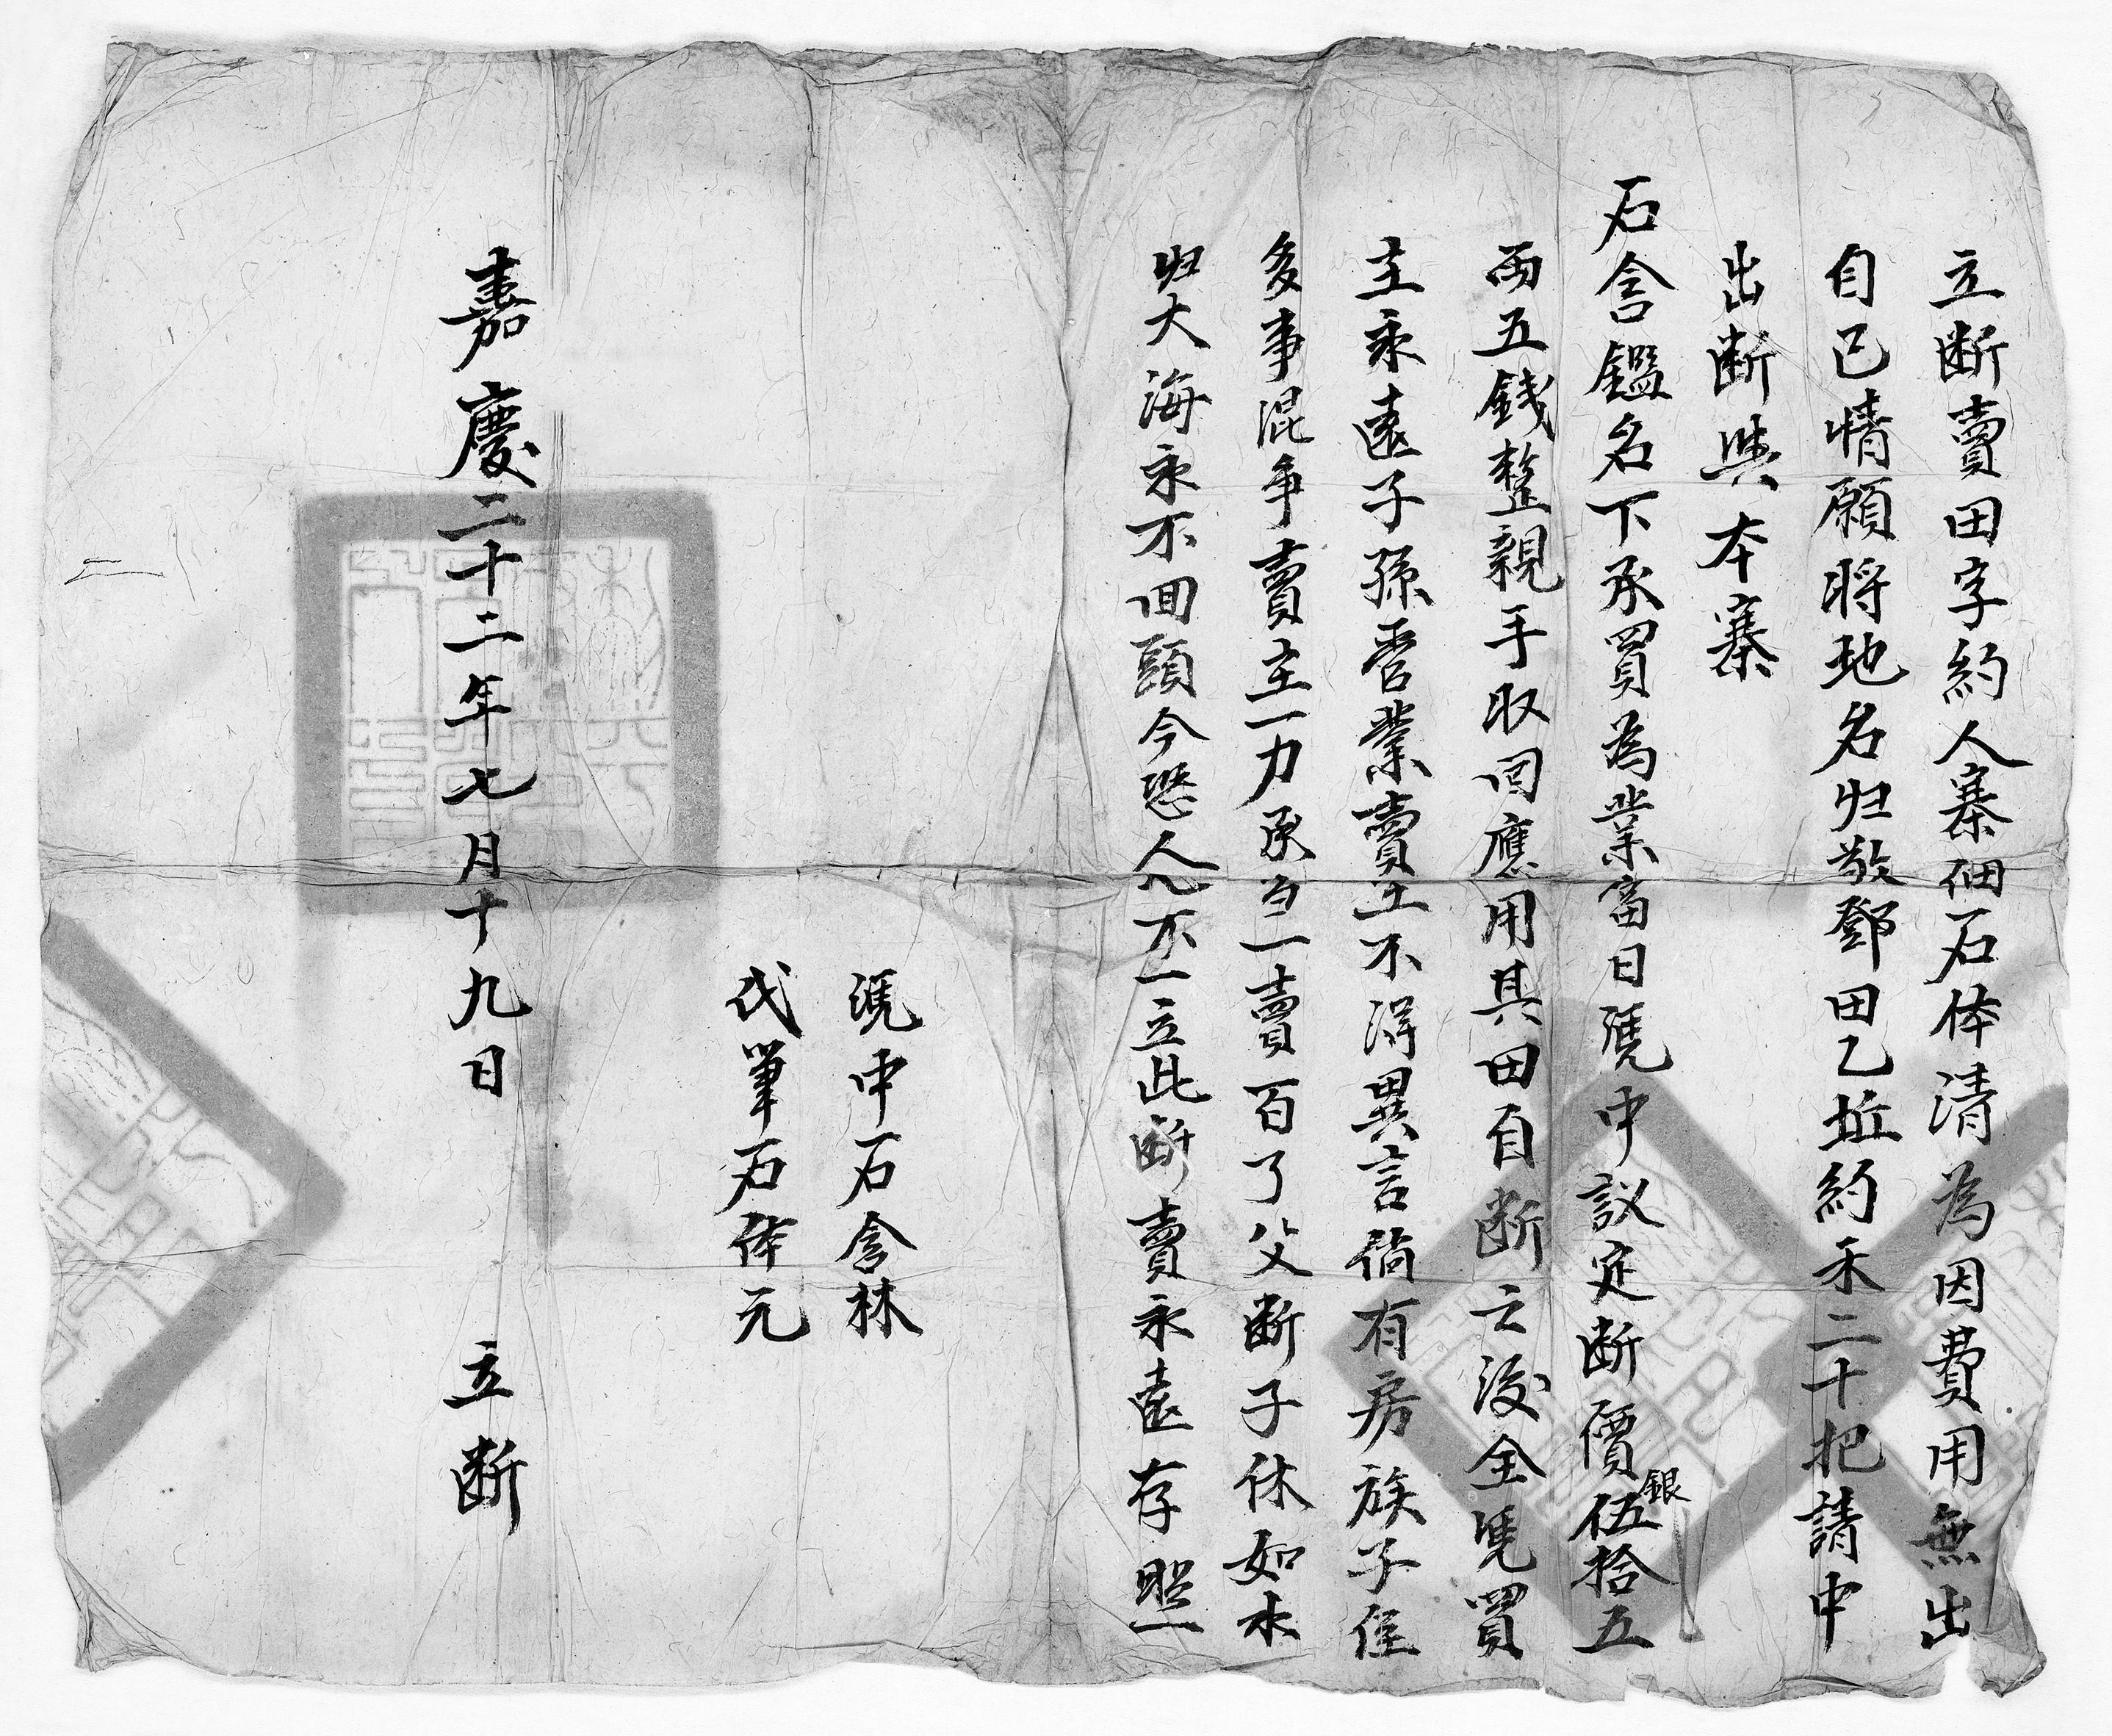 立断賣田字約人寨佃石体清為因費用無出
自己情願将地名归敬鄧田乙坵約禾二十把請中
出断與本寨
石含鑑名下承買為業當日凴中議定断價銀伍拾五
両五錢整親手収回應用其田自断云後全凴買
主永遠子孫管業賣主不得異言倘有房族子侄
多事混争賣主一力承当一賣百了父断子休如水
归大海永不回頭今恐人心不一立此断賣永遠存照
凴中石含林
代筆石体元
嘉慶二十二年七月十九日 立断